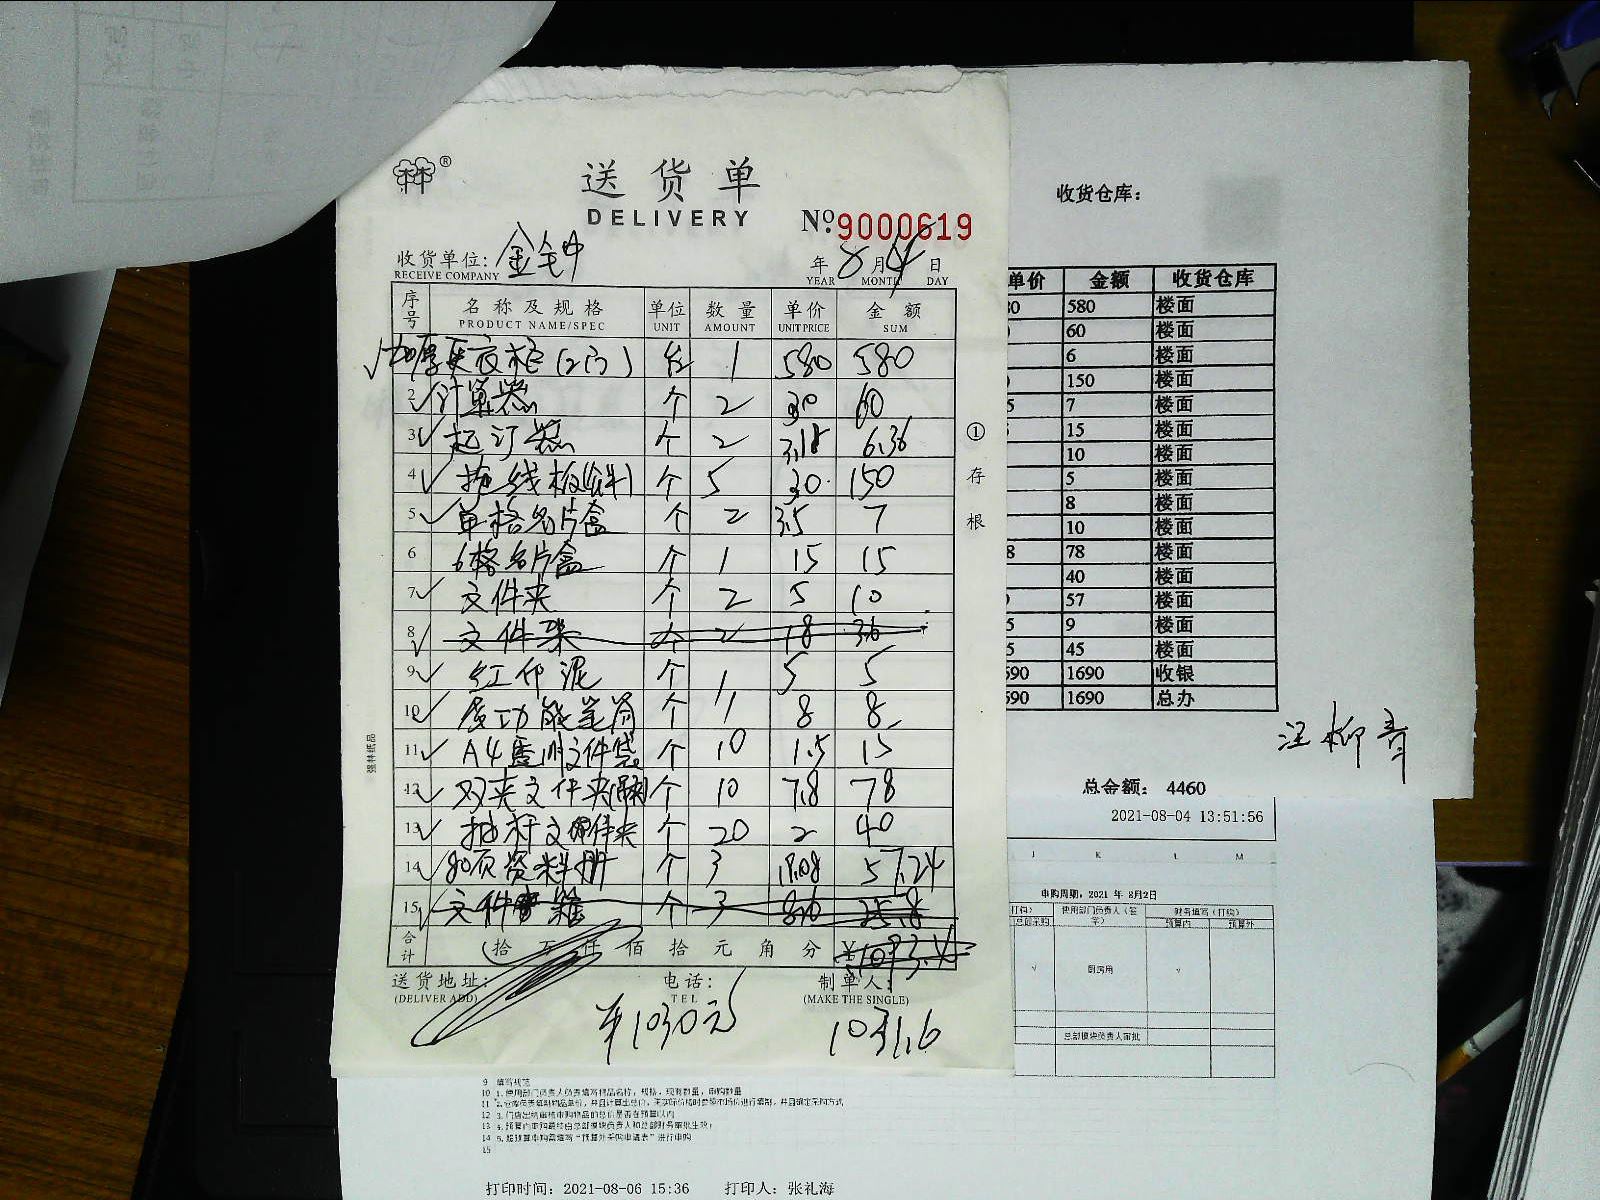 送货单
DELIVERY
№:9000619
收货单位:金钟
RECEIVE COMPANY
年8月4日
YEAR MONTH DAY
序号 名称及规格 单位 数量 单价 金额
PRODUCT NAME/SPEC UNIT AMOUNT UNIT PRICE SUM
加厚更衣柜(2门) 台 1 580 580
2 计算器 个 2 30 60
3 起订器 个 2 3.18 6.36
4 线板 个 5 30 150
5 单格名片盒 个 2 3.5 7
6 6格名片盒 个 1 15 15
7 文件夹 个 2 5 10
8 文件架 个 2 18 36
9 红印泥 个 1 5 5
10 多功能笔筒 个 1 8 8
11 A4透明文件袋 个 10 1.5 15
12 双夹文件夹 个 10 7.8 78
13 抽杆文件夹 个 20 2 40
14 80页资料册 个 3 19.08 57.24
15 文件 个 3 8.6 25.8
合计 拾万仟佰拾元角分 ¥1093.4
送货地址: 电话: 制单人:
(DELIVER ADD) TEL (MAKE THE SINGLE)
¥1030元 1031.6
①存根
强林纸品
收货仓库:
单价 金额 收货仓库
580 楼面
60 楼面
6 楼面
150 楼面
7 楼面
15 楼面
10 楼面
5 楼面
8 楼面
10 楼面
8 78 楼面
40 楼面
57 楼面
5 9 楼面
5 45 楼面
590 1690 收银
590 1690 总办
汪柳青
总金额: 4460
2021-08-04 13:51:56
J K L M
申购周期:2021 年 8月2日
使用部门负责人(签字) 财务填写(打钩)
预算内 预算外
√ 厨房用 √
总部模块负责人审批
9 填写规范
10
11
12
13
14
15
打印时间: 2021-08-06 15:36 打印人: 张礼海